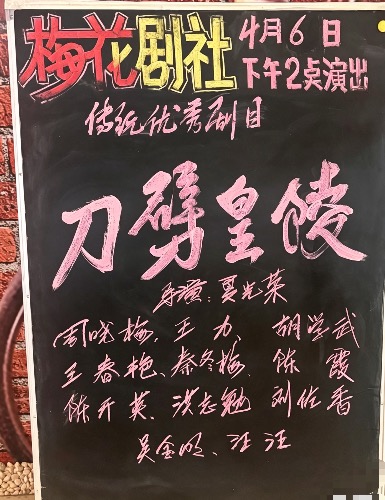 梅花剧社
4月6日
下午2点演出
传统优秀剧目
刀劈皇陵
导演:夏光荣
周晓梅、王力、胡学武
王春艳、秦冬梅、陈霞
陈开英、洪志勉 刘佐香
吴金明、汪汪